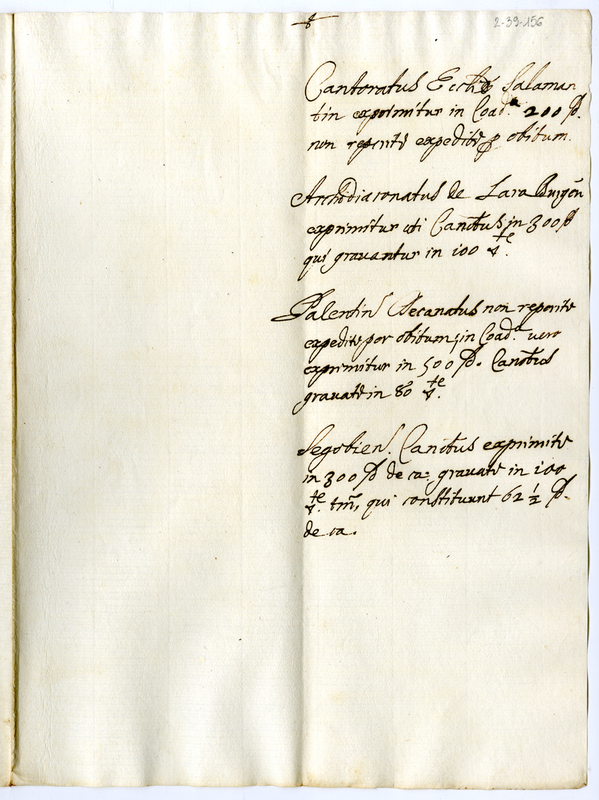 2-39-156
Cantoratus Eccłæ Salaman
tin exprimitur in Coad.ª 200 
non reperitr expeditr p obitum.
Archidiaconatus de Lara Burgen
exprimitur uti Canitus in 300
qui grauantur in 100
Palentin Decanatus non reperitr
expeditr por obitum; in Coad.ª uero
exprimitur in 500 Canitus
grauatr in 80
Segobien. Canitus exprimitr
in 300 de ca: grauatr in 100
tm, qui constituunt 62 ½
de ca.